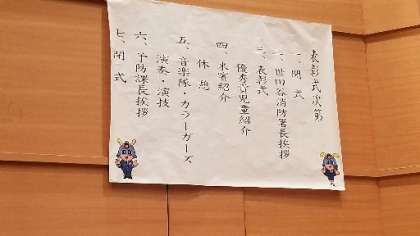 表彰式次第
一、開式
二、世田谷消防署長挨拶
三、表彰式
優秀賞児童紹介
四、来賓紹介
休憩
五、音楽隊・カラーガーズ
演奏・演技
六、予防課長挨拶
七、閉式